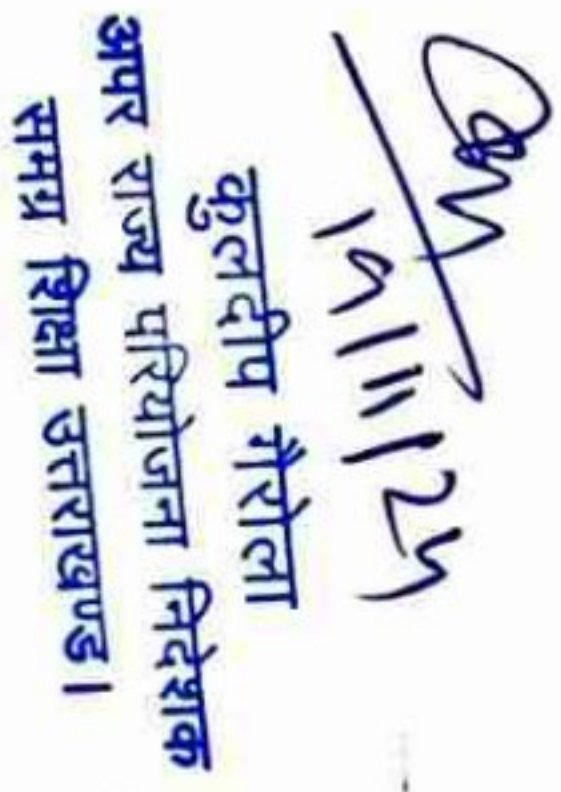 कुलदीप गैरोला
अपर राज्य परियोजना निदेशक
समग्र शिक्षा उत्तराखण्ड।